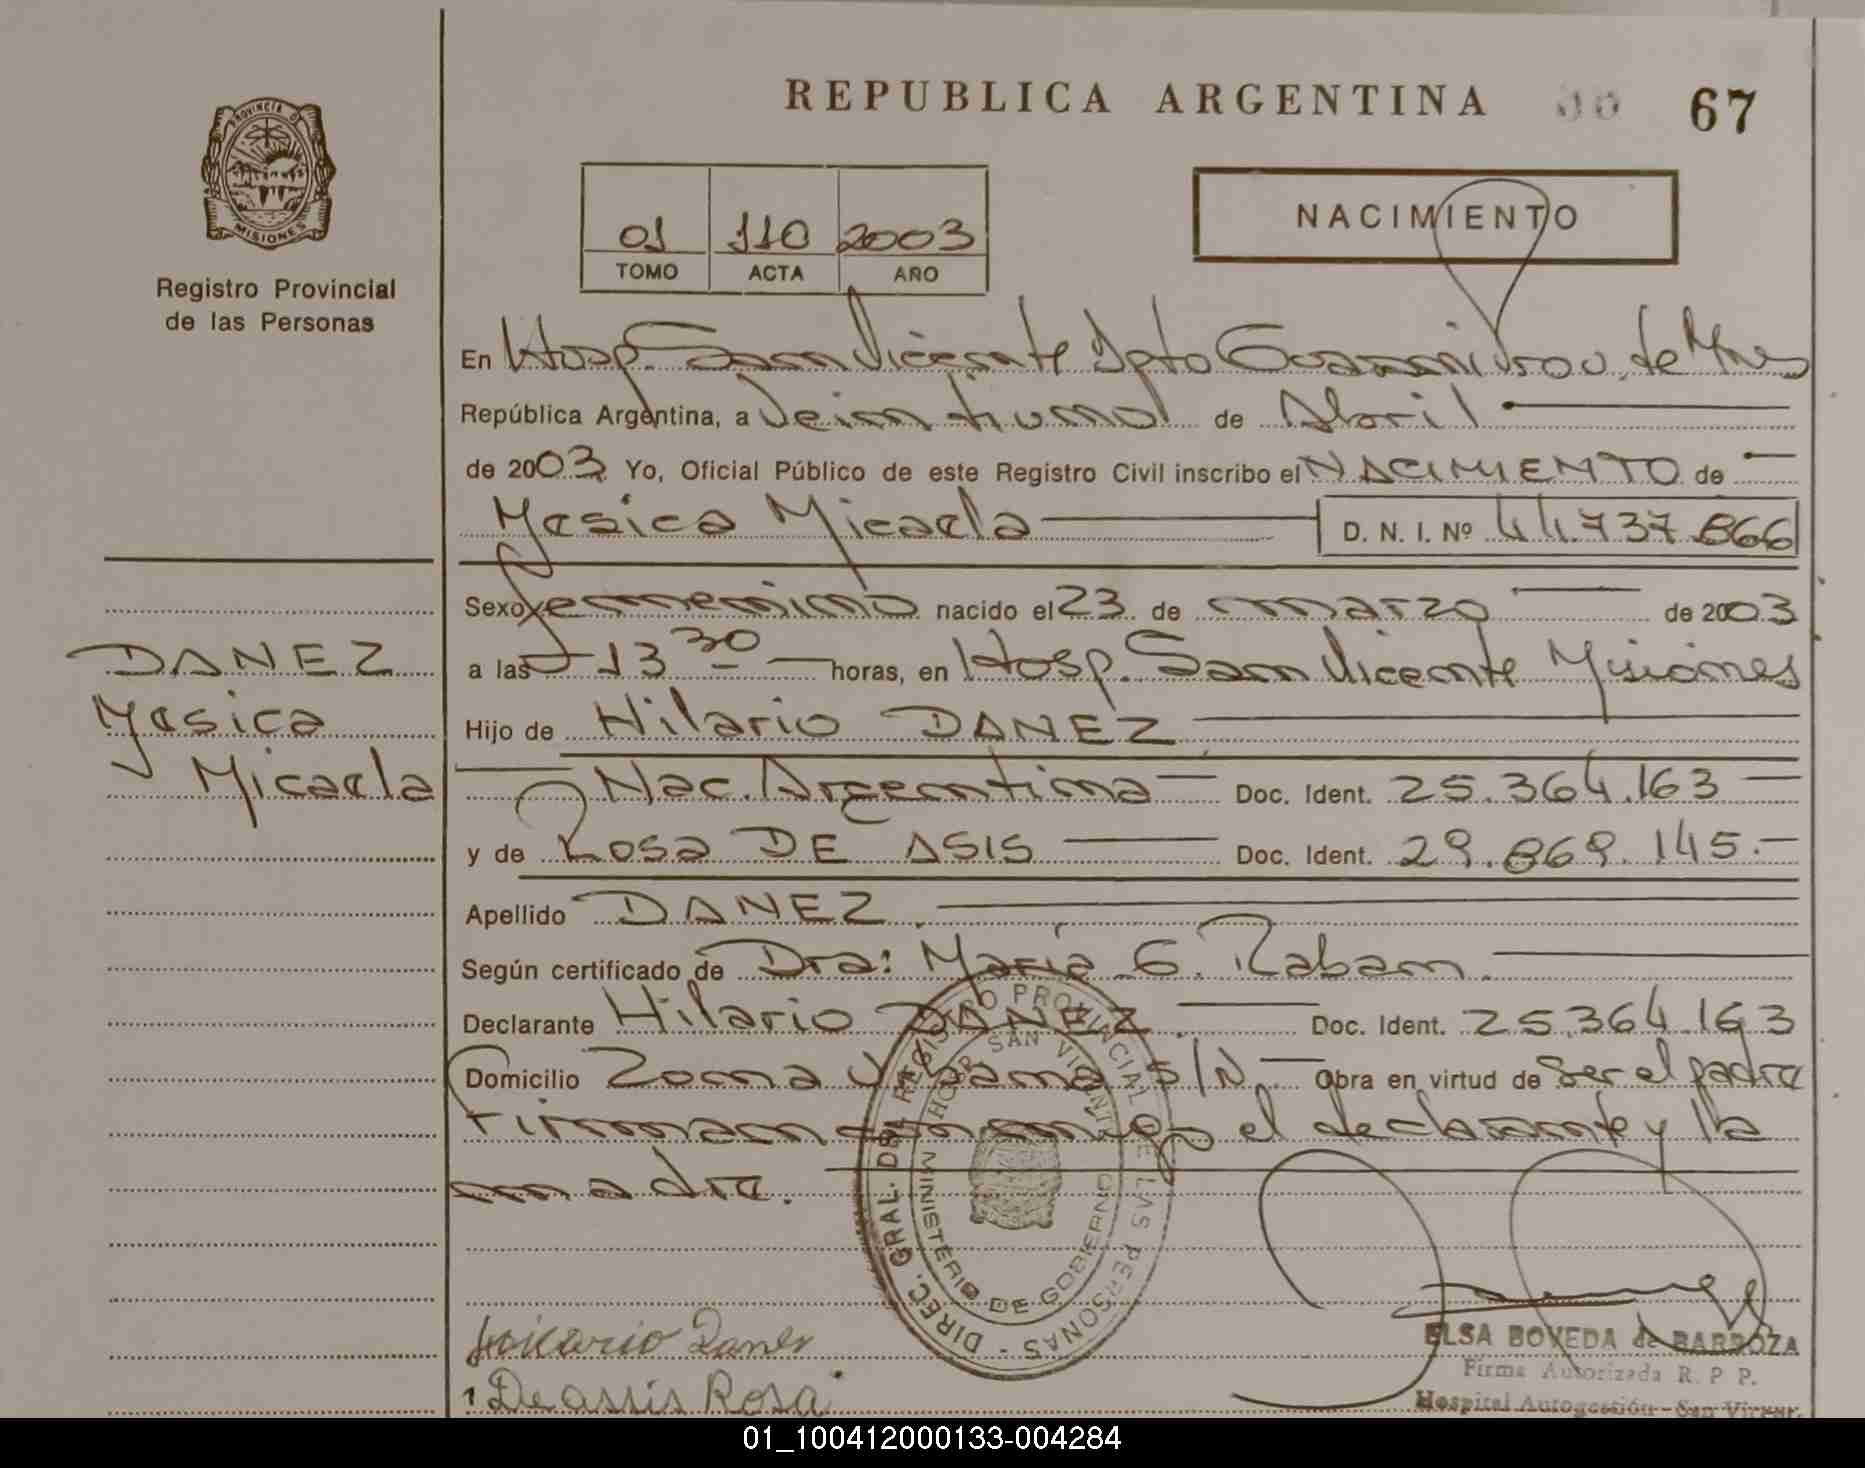 REPUBLICA ARGENTINA 00 67
PROVINCIA DE MISIONES
Registro Provincial
de las Personas
01 110 2003
TOMO ACTA AÑO
NACIMIENTO
En Hosp. San Vicente Dpto Guarani Prov. de Mnes
República Argentina, a Veintiuno de Abril
de 2003 Yo, Oficial Público de este Registro Civil inscribo el NACIMIENTO de
Yesica Micaela D. N. I. Nº 44.737.866
Sexo femenino nacido el 23 de marzo de 2003
a las 13 30 horas, en Hosp. San Vicente Misiones
Hijo de Hilario DANEZ
Nac. Argentina Doc. Ident. 25.364.163
y de Rosa DE ASIS Doc. Ident. 29.869.145.
Apellido DANEZ
Según certificado de Dra: María G. Raban.
Declarante Hilario DANEZ. Doc. Ident. 25.364.163
Domicilio Zona Urbana S/N. Obra en virtud de ser el padre
Firman conmigo el declarante y la
madre.
DANEZ
Yesica
Micaela
DIREC. GRAL. DEL REGISTRO PROVINCIAL DE LAS PERSONAS -
HOSP. SAN VICENTE
MINISTERIO DE GOBIERNO
Hilario Danez
De assis Rosa
ELSA BOVEDA de BARBOZA
Firma Autorizada R. P P.
Hospital Autogestión - San Vicent.
01_100412000133-004284